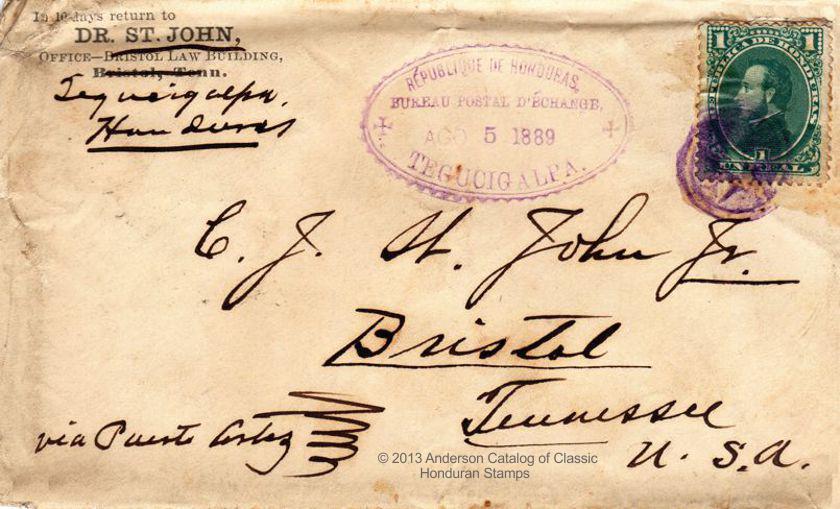 In 10 days return to
DR. ST. JOHN,
OFFICE—BRISTOL LAW BUILDING,
Bristol, Tenn.
Tegucigalpa,
Honduras
RÉPUBLIQUE DE HONDURAS,
BUREAU POSTAL D'ÉCHANGE,
AGO 5 1889
TEGUCIGALPA.
1 1
REPUBLICA DE HONDURAS
1
UN REAL
C. J. St. John Jr.
Bristol
Tennessee
U. S. A.
via Puerto Cortez
© 2013 Anderson Catalog of Classic
Honduran Stamps